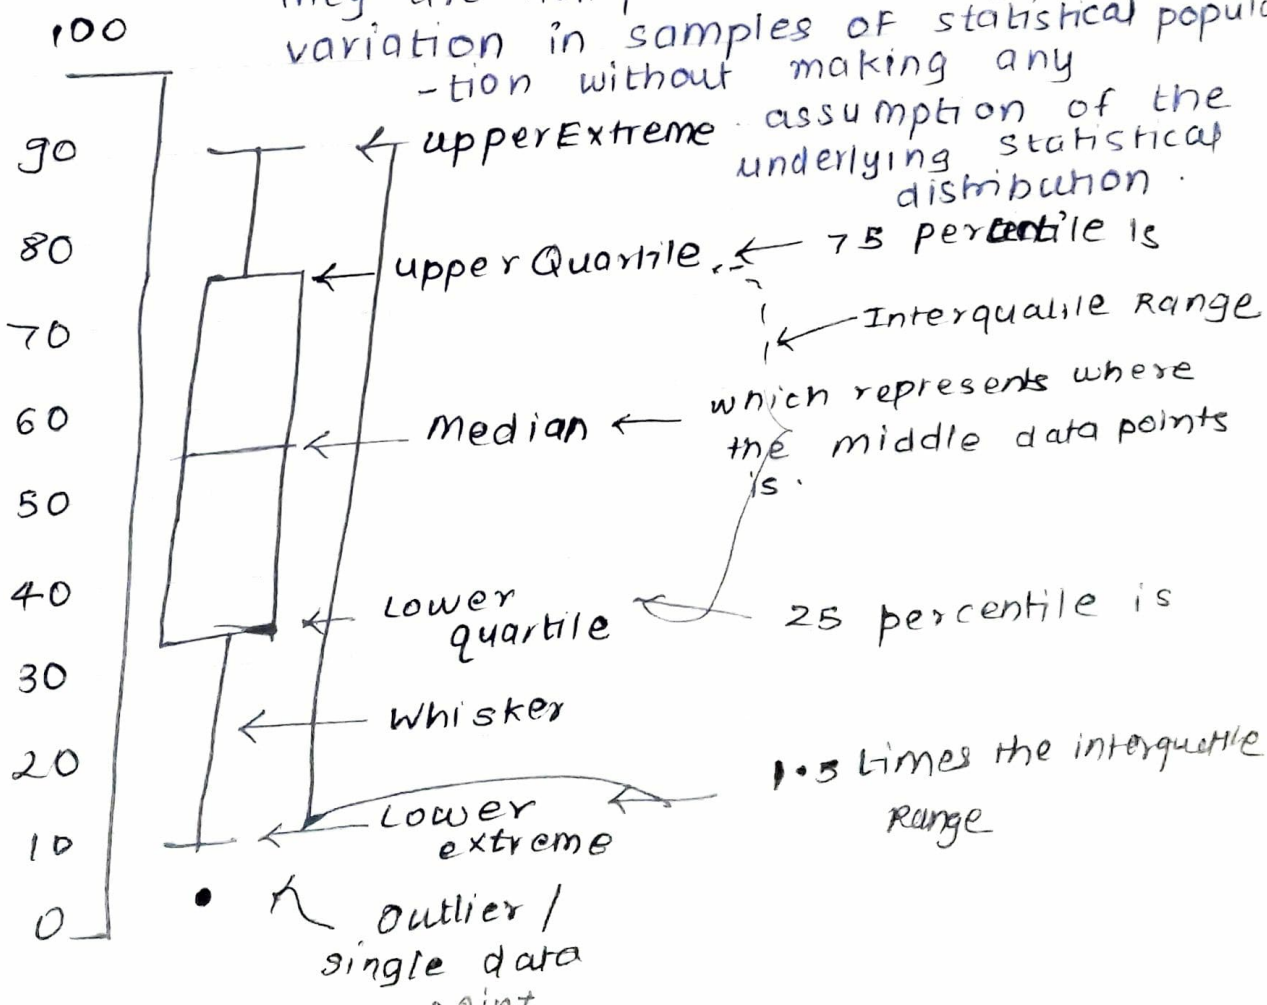 variation in samples of statistical popula
-tion without making any
assumption of the
underlying statistical
distribution.
100
90
upper Extreme
80
upper Quartile
75 percentile is
70
Interquatile Range
60
Median
which represents where
the middle data points
is.
50
40
Lower
quartile
25 percentile is
30
Whisker
20
1.5 times the interquartile
Range
10
Lower
extreme
0
Outlier /
single data
point